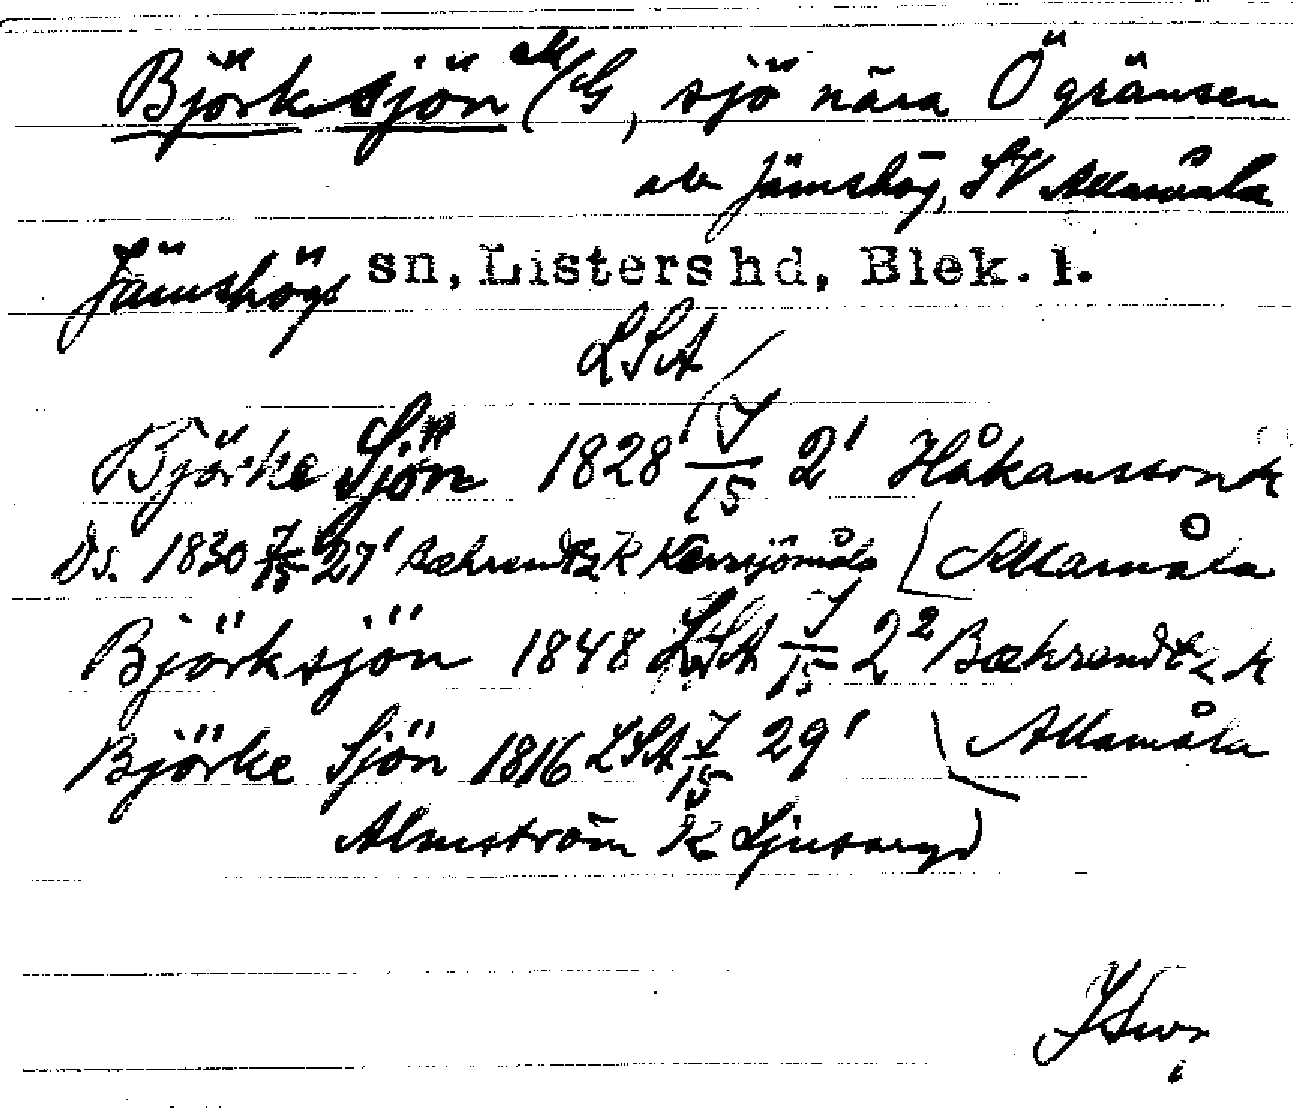 Björksjön M/G, sjö nära Ö gränsen
av Jämshög, SV Allamåla
Jämshögs sn, Listers hd, Blek. l.
LSA
Björke Sjön 1828 J/15 2' Håkansson k
Ds. 1830 J/15 27' Bæhrendtz k Allamåla
Björksjön 1848 LSA J/15 2² Bæhrendtz k
Björke Sjön 1816 LSA J/15 29' Allamåla
Almström k Ljusaryd